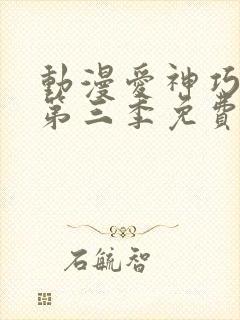 動漫愛神巧
第三季免費
石毓智